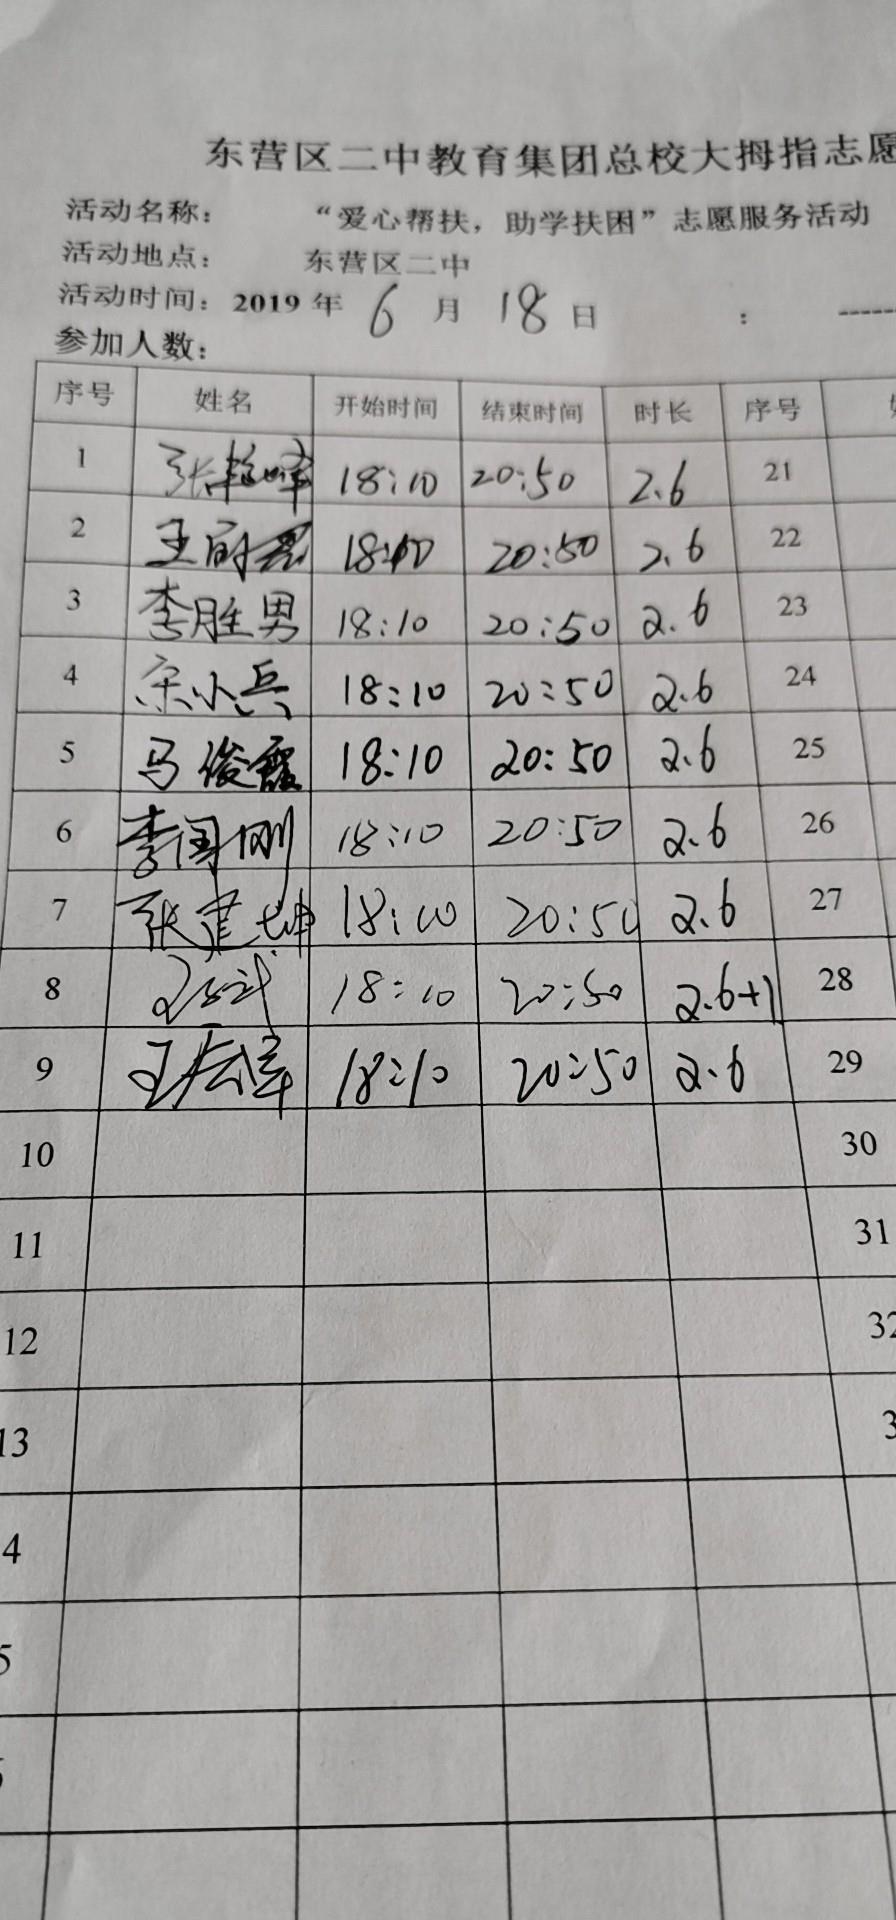 东营区二中教育集团总校大拇指志愿
活动名称： “爱心帮扶，助学扶困”志愿服务活动
活动地点： 东营区二中
活动时间：2019 年 6 月 18 日 ： ------
参加人数：
序号 姓名 开始时间 结束时间 时长 序号
1 张艳峰 18:10 20:50 2.6 21
2 王 18:10 20:50 2.6 22
3 李胜男 18:10 20:50 2.6 23
4 宋小兵 18:10 20:50 2.6 24
5 马俊霞 18:10 20:50 2.6 25
6 李国刚 18:10 20:50 2.6 26
7 张建坤 18:10 20:50 2.6 27
8 18:10 20:50 2.6+1 28
9 王 18:10 20:50 2.6 29
10 30
11 31
12 32
13 3
4
5